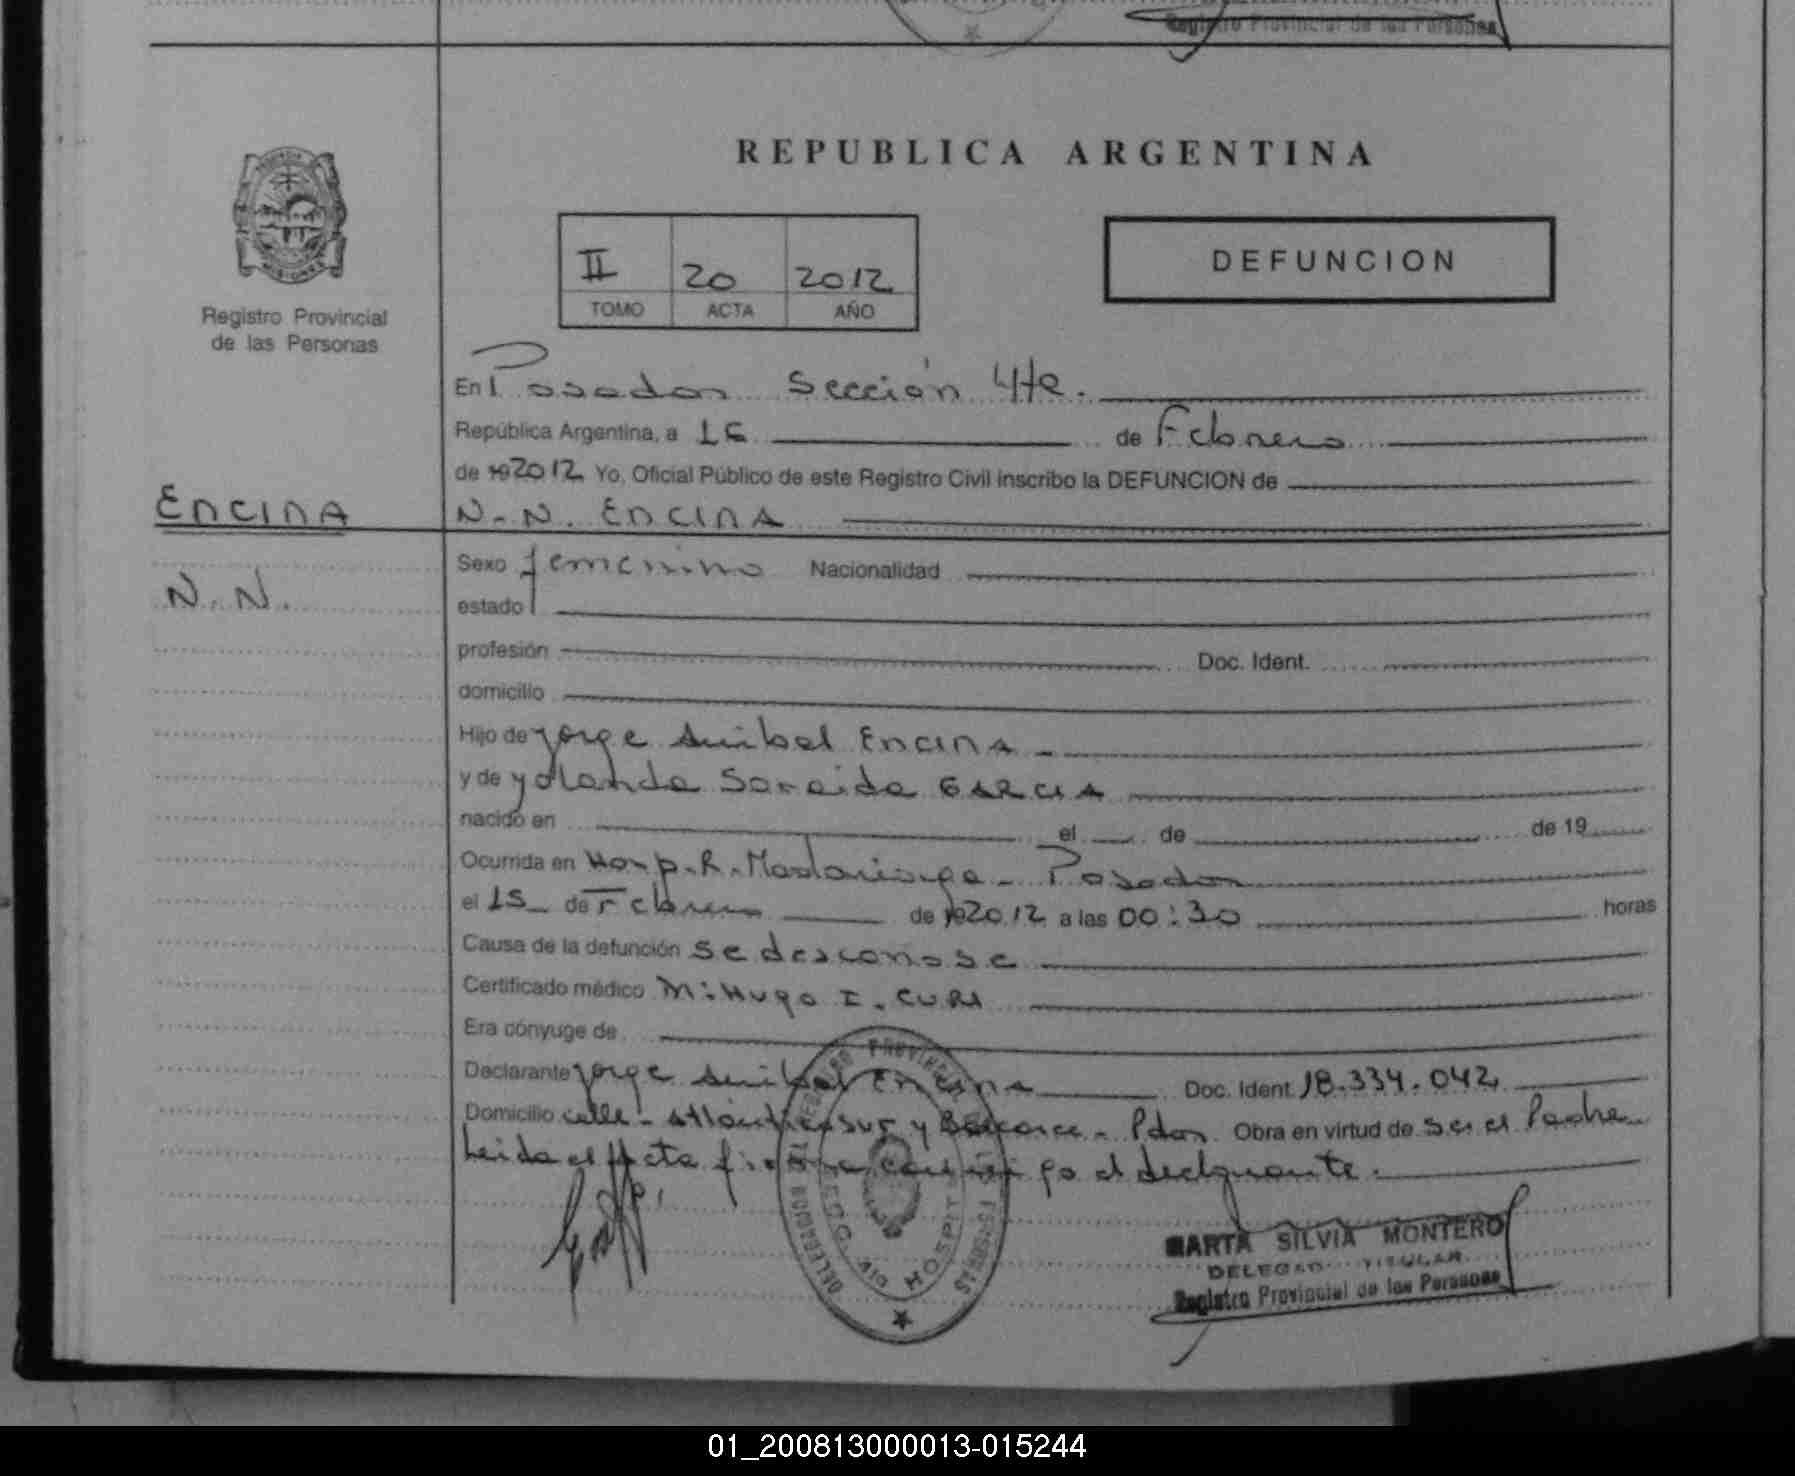 Registro Provincial de las Personas
REPUBLICA ARGENTINA
II 20 2012
TOMO ACTA AÑO
DEFUNCION
Registro Provincial
de las Personas
En Posadas Sección 4ta.
República Argentina, a 16 de Febrero
de 19 2012 Yo, Oficial Público de este Registro Civil inscribo la DEFUNCION de
ENCINA
N.N. ENCINA
N.N.
Sexo femenino Nacionalidad
estado
profesión Doc. Ident.
domicilio
Hijo de Jorge Anibal ENCINA
y de Yolanda Soraida GARCIA
nacido en el de de 19
Ocurrida en Hosp. R. Madariaga - Posadas
el 15 de Febrero de 19 2012 a las 00:30 horas
Causa de la defunción se desconose
Certificado médico M: Hugo I. CURA
Era cónyuge de
Declarante Jorge Anibal Encina Doc. Ident. 18.334.042
Domicilio calle - Atlántico Sur y - Pdas. Obra en virtud de ser el Padre
Leida el Acta firma conmigo el declarante.
DELEGACION REGISTRO PROVINCIAL DE LAS PERSONAS
HOSPIT
MARTA SILVIA MONTERO
DELEGAD TITULAR
Registro Provincial de las Personas
01_200813000013-015244